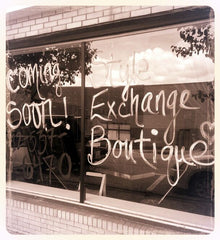 Coming
Soon!
Style
Exchange
Boutique